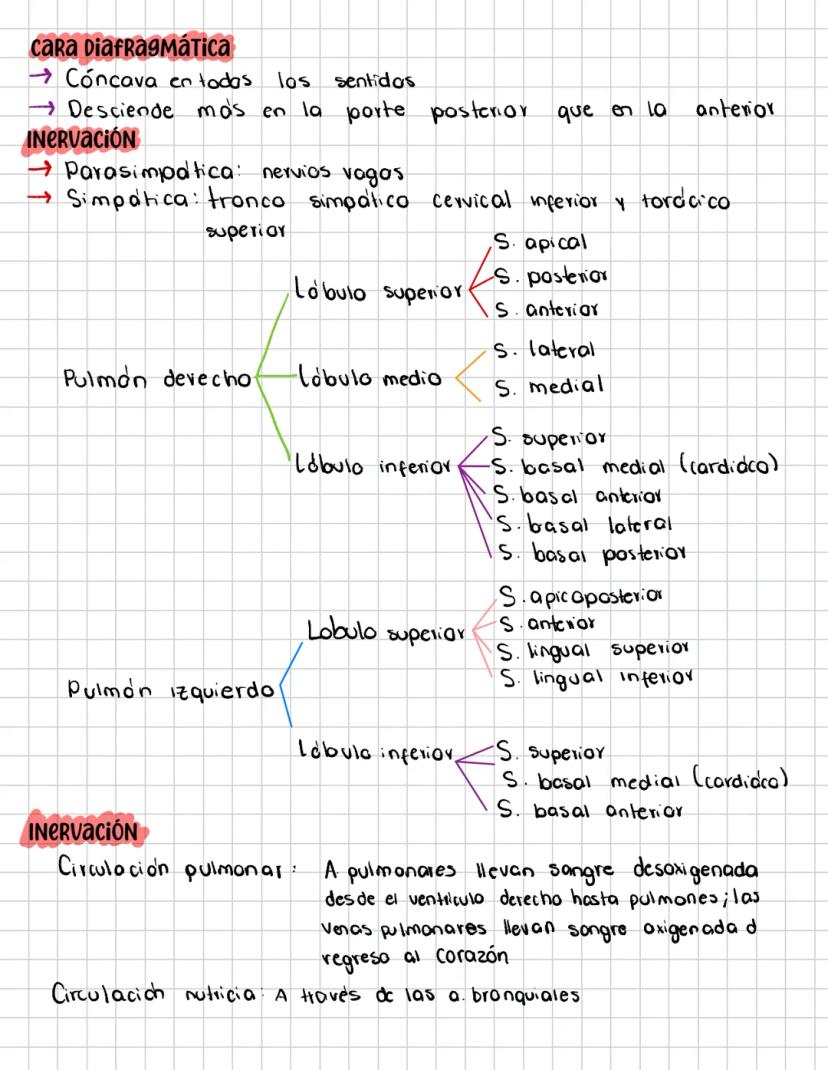 CARA DIAFRAGMÁTICA
→ Cóncava en todos los sentidos
→ Desciende más en la parte posterior que en la anterior
INERVACIÓN
→ Parasimpática: nervios vagos
→ Simpática: tronco simpático cervical inferior y torácico
superior
S. apical
Lóbulo superior
S. posterior
S. anterior
S. lateral
Pulmón derecho
Lóbulo medio
S. medial
S. superior
Lóbulo inferior
S. basal medial (cardiáco)
S. basal anterior
S. basal lateral
S. basal posterior
S. apicoposterior
Lobulo superior
S. anterior
S. lingual superior
S. lingual inferior
Pulmón izquierdo
Lóbulo inferior
S. superior
S. basal medial (cardiáco)
S. basal anterior
INERVACIÓN
Circulación pulmonar: A pulmonares llevan sangre desoxigenada
desde el ventrículo derecho hasta pulmones; las
venas pulmonares llevan sangre oxigenada d
regreso al corazón
Circulación nutricia: A través de las a. bronquiales